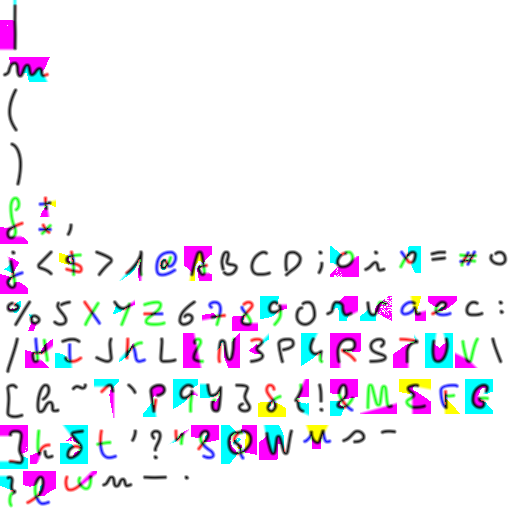 |
m
(
)
f ± ,
j < $ > 1 @ A B C D ; o i = # o
% . 5 X Y Z 6 7 8 9 0 r v a e c :
/ H I J K L 2 N 3 P 4 R S T U V \
[ h ~ ` p q y 3 { ! & M E F G
] k t ' ? " Q W u s -
} l w n — .